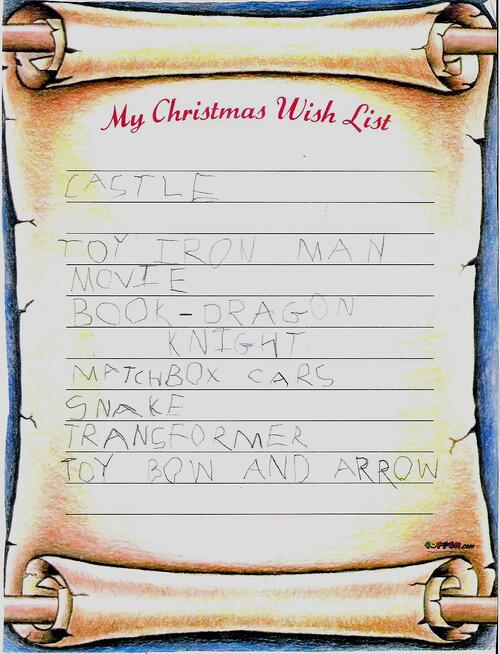 My Christmas Wish List
CASTLE
TOY IRON MAN
MOVIE
BOOK-DRAGON
KNIGHT
MATCHBOX CARS
SNAKE
TRANSFORMER
TOY BOW AND ARROW